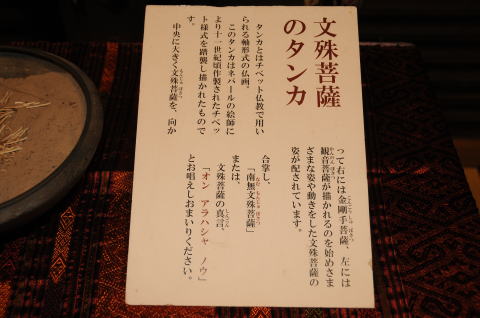 文殊菩薩
のタンカ
タンカとはチベット仏教で用い
られる軸形式の仏画。
このタンカはネパールの絵師に
より十一世紀頃作製されたチベッ
ト様式を踏襲し描かれたもので
す。
中央に大きく文殊菩薩を、向か
って右には金剛手菩薩、左には
観音菩薩が描かれるのを始めさま
ざまな姿や動きをした文殊菩薩の
姿が配されています。
合掌し、
「南無文殊菩薩」
または、
文殊菩薩の真言、
「オン アラハシャ ノウ」
とお唱えしおまいりください。